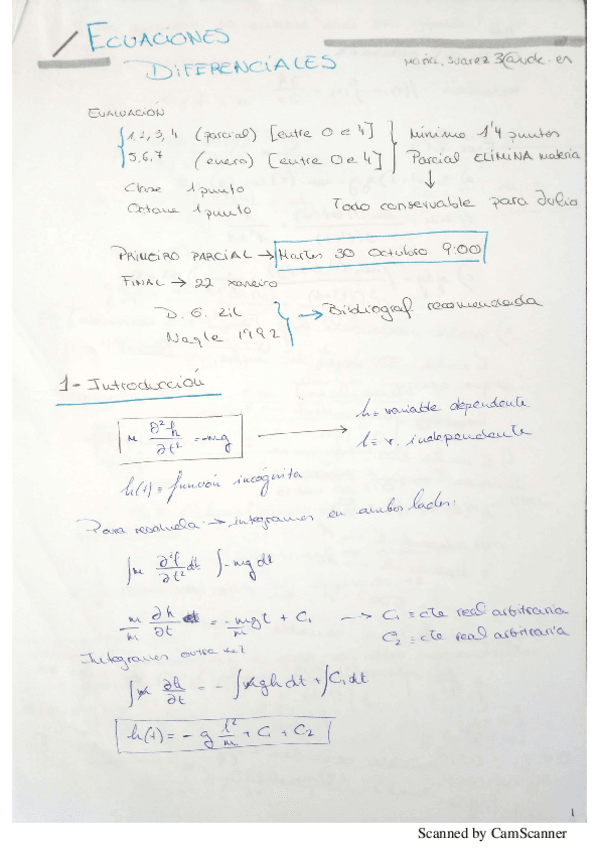 ECUACIONES
DIFERENCIALES
EVALUACIÓN
1,2,3,4 (parcial) [entre 0 e 4] Mínimo 1'4 puntos
5,6,7 (enero) [entre 0 e 4] Parcial ELIMINA materia
Clase 1 punto
Octave 1 punto Todo conservable para Julio
PRIMEIRO PARCIAL → Martes 30 Octubro 9:00
FINAL → 22 xaneiro
D. G. Zil
Nagle 1992 → Bibliograf recomendada
1- Introducción
m ∂²h/∂t² = -mg → h = variable dependente
t = v. independente
h(t) = función incógnita
Para resolvela → integramos en ambos lados:
∫m ∂²h/∂t² dt ∫-mg dt
m/m ∂h/∂t = -mgt/m + C₁ → C₁ = cte real arbitraria
C₂ = cte real arbitraria
Integramos outra vez
∫ ∂h/∂t = -∫ gh dt + ∫C₁dt
h(t) = -g t²/m + C₁ + C₂
1
Scanned by CamScanner